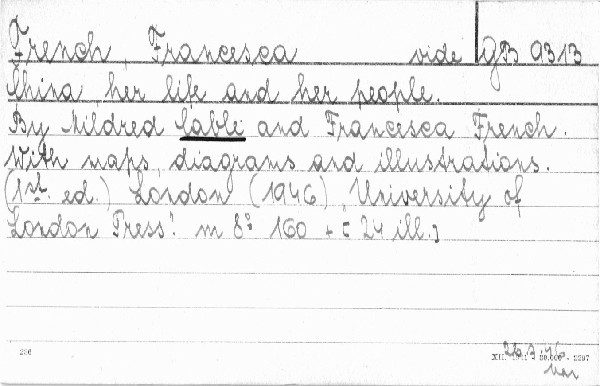 French, Francesca vide GB 9313
China her life and her people.
By Mildred Cable and Francesca French.
With maps, diagrams and illustrations.
(1st. ed.) London (1946), University of
London Press. m 8º 160 + 24 ill.
286